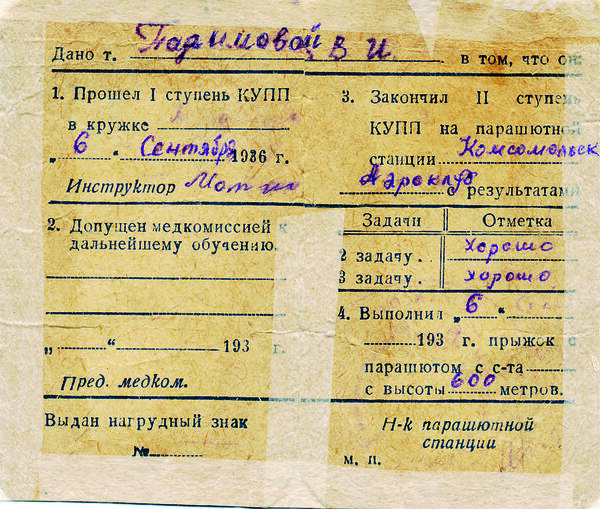 Дано т. Падимовой В И. в том, что он:
1. Прошел I ступень КУПП
в кружке
„6“ Сентября 1936 г.
Инструктор
2. Допущен медкомиссией к
дальнейшему обучению.
„ “ 193 г.
Пред. медком.
Выдан нагрудный знак
№
3. Закончил II ступень
КУПП на парашютной
станции Комсомольск
Аэроклуб с результатами
Задачи Отметка
2 задачу. . Хорошо
3 задачу. . хорошо
4. Выполнил „6“
193 г. прыжок с
парашютом с с-та
с высоты 600 метров.
Н-к парашютной
станции
м. п.